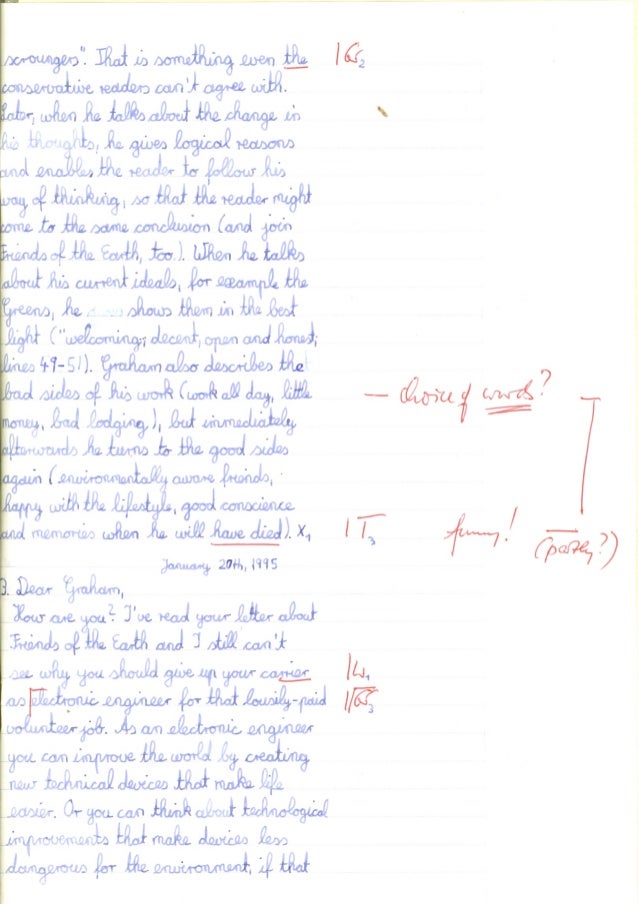 scroungers". That is something even the |GS₂
conservative readers can't agree with.
Later, when he talks about the change in
his thoughts, he gives logical reasons
and enables the reader to follow his
way of thinking, so that the reader might
come to the same conclusion (and join
Friends of the Earth, too.). When he talks
about his current ideals, for example the
Greens, he shows them in the best
light ("welcoming, decent, open and honest,
lines 49-51). Graham also describes the
bad sides of his work (work all day, little — choice of words?
money, bad lodging), but immediately
afterwards he turns to the good sides
again (environmentally aware friends,
happy with the lifestyle, good conscience
and memories when he will have died). x₁ |T₃ funny! (partly?)
January 20th, 1995
3. Dear Graham,
How are you? I've read your letter about
Friends of the Earth and I still can't
see why you should give up your carrier
as electronic engineer for that lousily-paid
volunteer job. As an electronic engineer
you can improve the world by creating
new technical devices that make life
easier. Or you can think about technological
improvements that make devices less
dangerous for the environment, if that